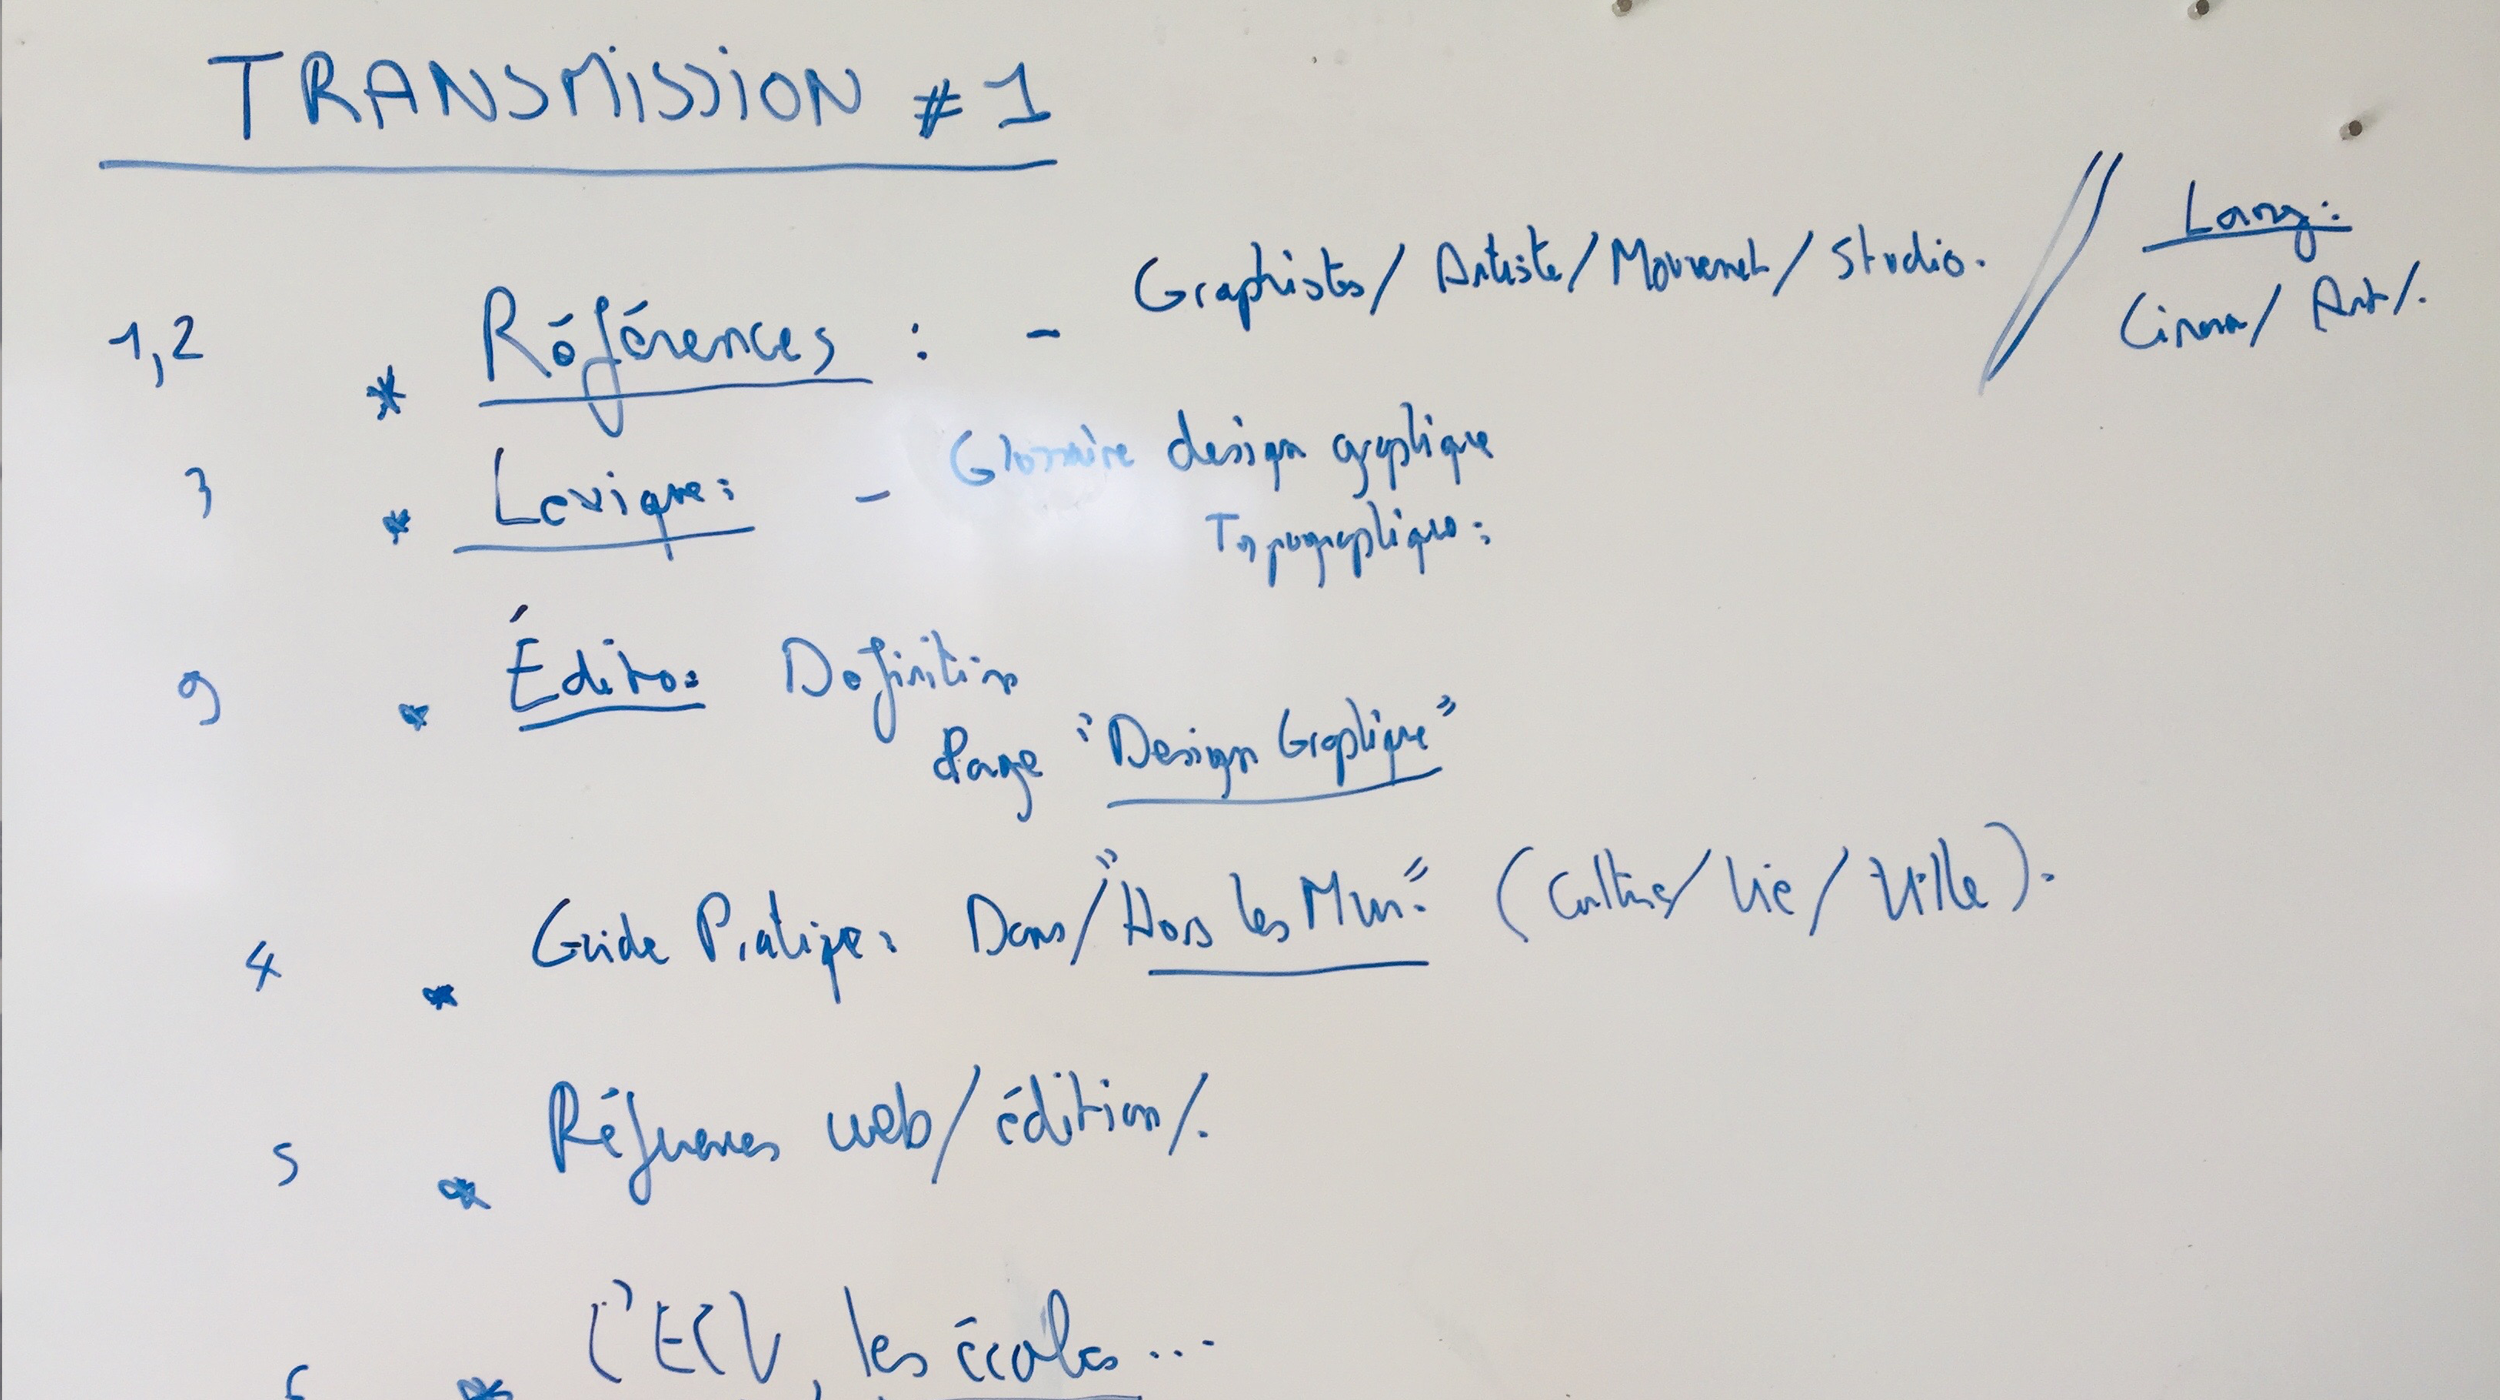 TRANSMISSION #1
1,2 * Références : - Graphistes/ Artiste/ Mouvement/ Studio. // Lang:
Cinema/ Art/.
3 * Lexique: - Glossaire design graphique
Typographique:
9 * Édito: Definition
Page "Design Graphique"
4 * Guide Pratique: Dans/ "Hors les Murs" (Culture/ Vie/ Ville).
5 * Références web/ édition/.
6 * L'ECV, les écoles...